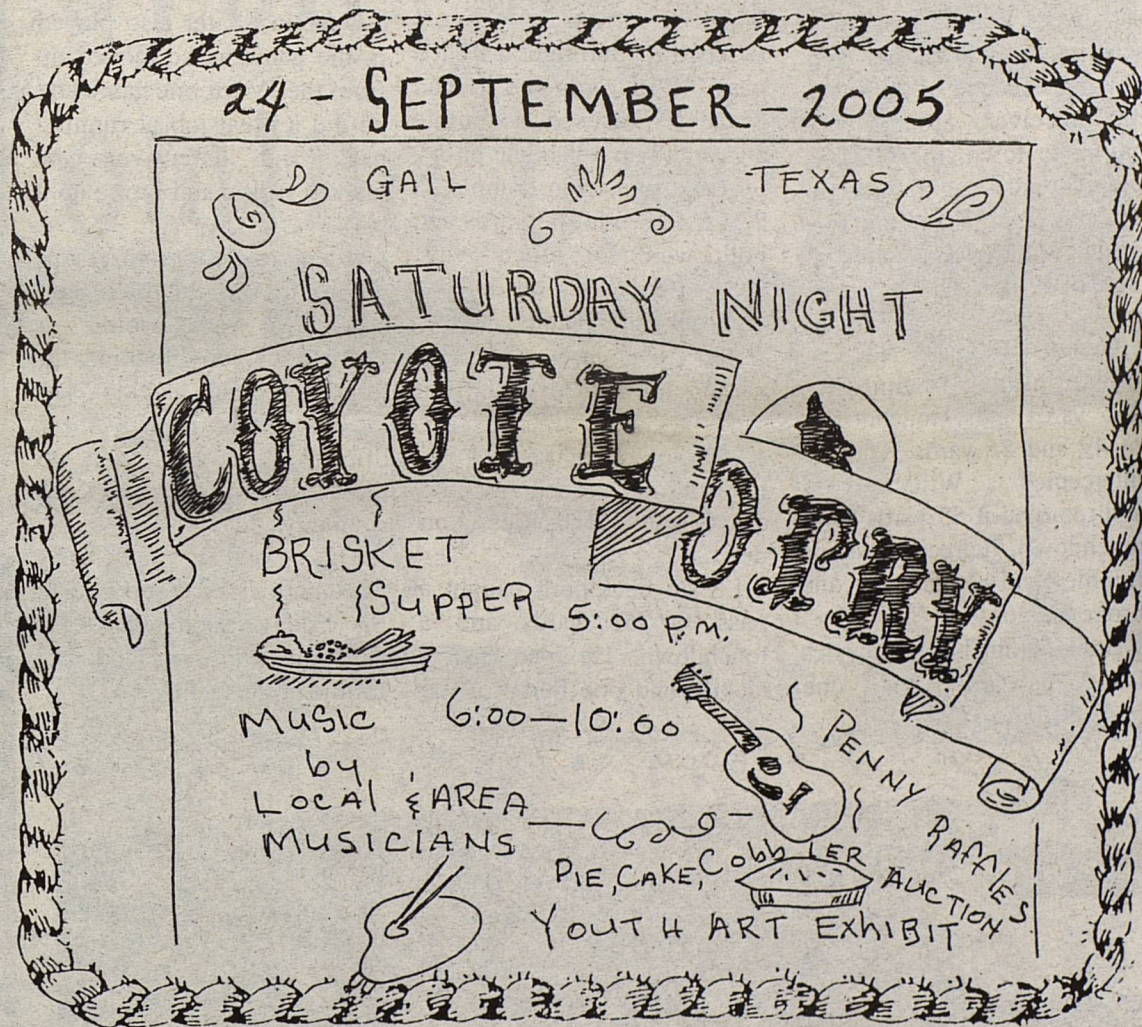 24 - SEPTEMBER - 2005
GAIL TEXAS
SATURDAY NIGHT
COYOTE
OPRY
BRISKET
SUPPER 5:00 P.M.
MUSIC 6:00—10:00
by
LOCAL & AREA
MUSICIANS
PENNY RAFFLES
PIE, CAKE, CObbLER AUCTION
YOUTH ART EXhIBIT